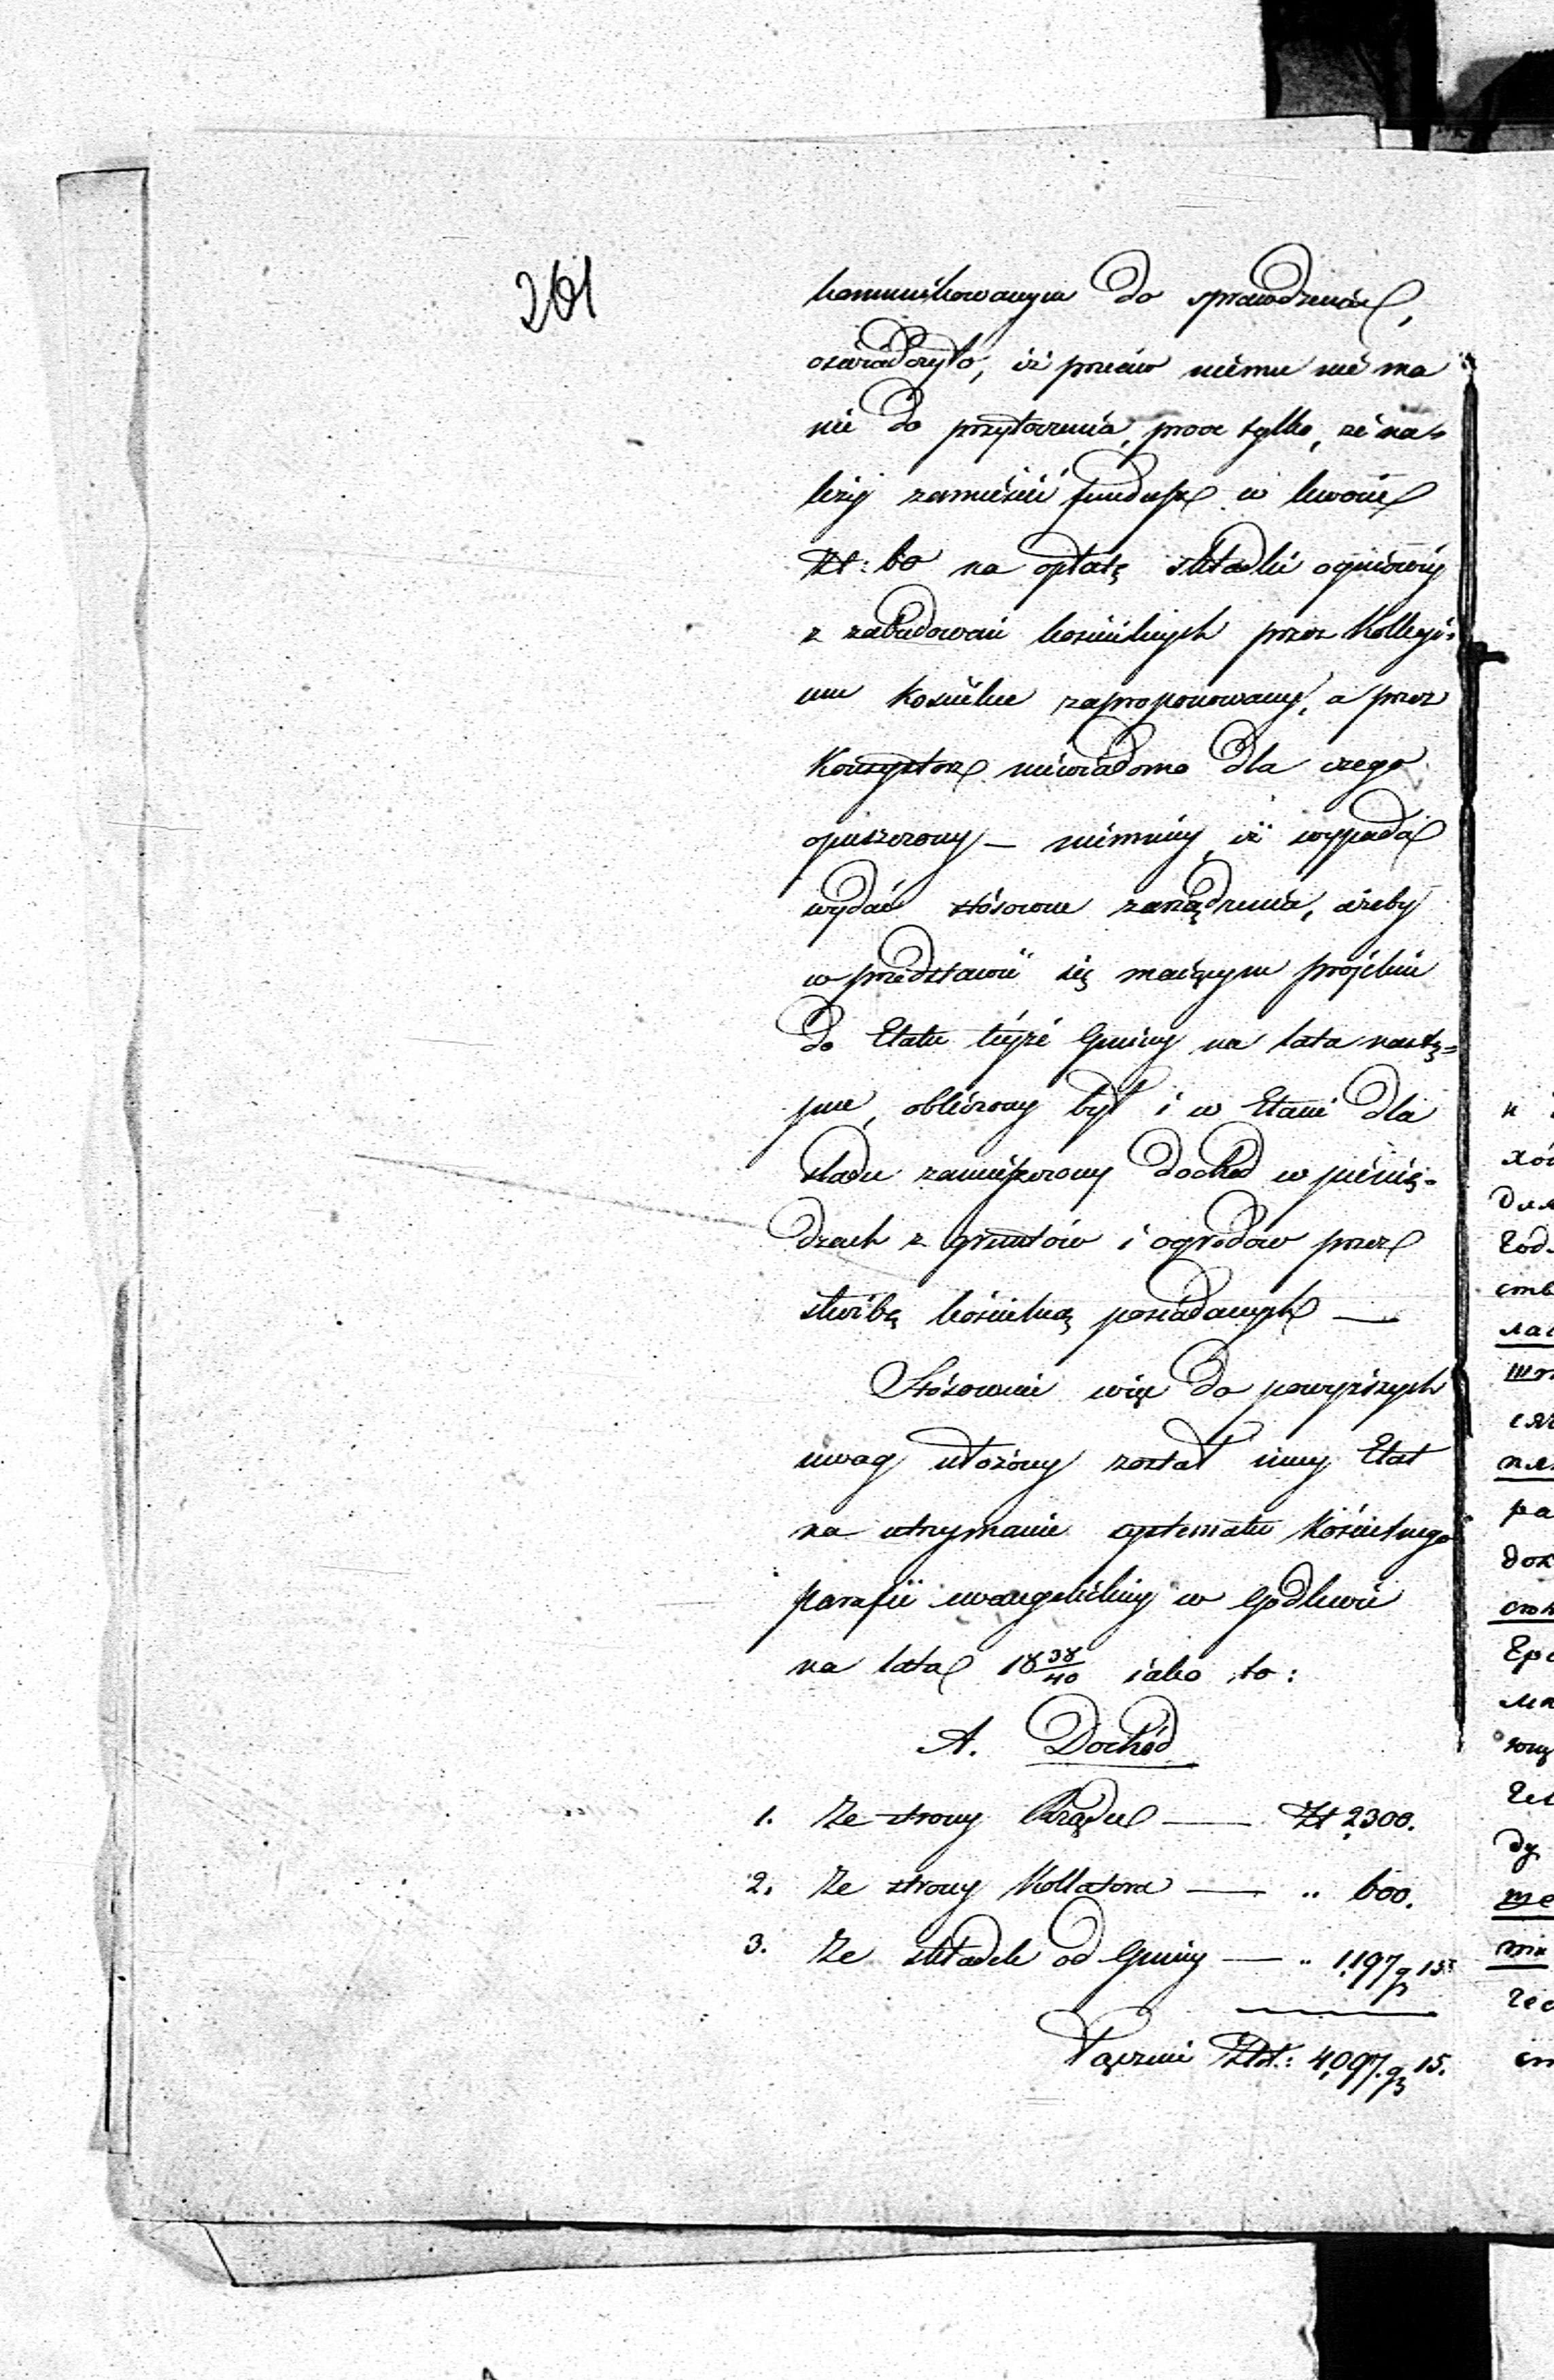 261
kommunikowanym do sprawdzenia,
oświadczyło, iż przeciw niemu nie ma
nic do przytoczenia, prócz tylko, że na-
leży zamieścić fundusz w kwocie
Zł: 60 na opłatę składki ogniowéy
z zabudowań kościelnych przez Kollegi-
um Kościelne zaproponowany, a przez
Konsystorz niewiadomo dla czego
opuszczony — niemniéy iż wypada
wydać stósowne zarządzenia, ażeby
w przedstawić się maiącym projekcie
do Etatu téyże Gminy na lata nastę-
pne, obliczony był i w Etacie dla
śladu zamieszczony dochód w pienię-
dzach z gruntów i ogrodów przez
służbę kościelną posiadanych —
Stósownie więc do powyższych
uwag ułożony został inny Etat
na utrzymanie systematu Kościelnego
parafii ewangelickiey w Godlewie
na lata 18 38/40 iako to:
A. Dochód
1. Ze strony Rządu — Zł 2300.
2. Ze strony Kollatora — " 600.
3. Ze składek od Gminy — " 1,197 gr 15.
Łącznie Złot: 4,097. gr 15.